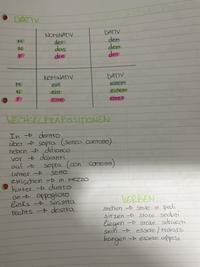 DATIV
NOMINATIV DATIV
M: der dem
N: das dem
F: die der
NOMINATIV DATIV
M: ein einem
N: ein einem
F: eine einer
WECHSELPRÄPOSITIONEN
In → dentro
über → sopra (senza contatto)
neben → di fianco
vor → davanti
auf → sopra (con contatto)
unter → sotto
zwischen → in mezzo
hinter → dietro
an → appoggiato
links → sinistra
rechts → destra
VERBEN
stehen → stare in piedi
sitzen → stare seduti
liegen → stare sdraiati
sein → essere/trovarsi
hängen → essere appeso